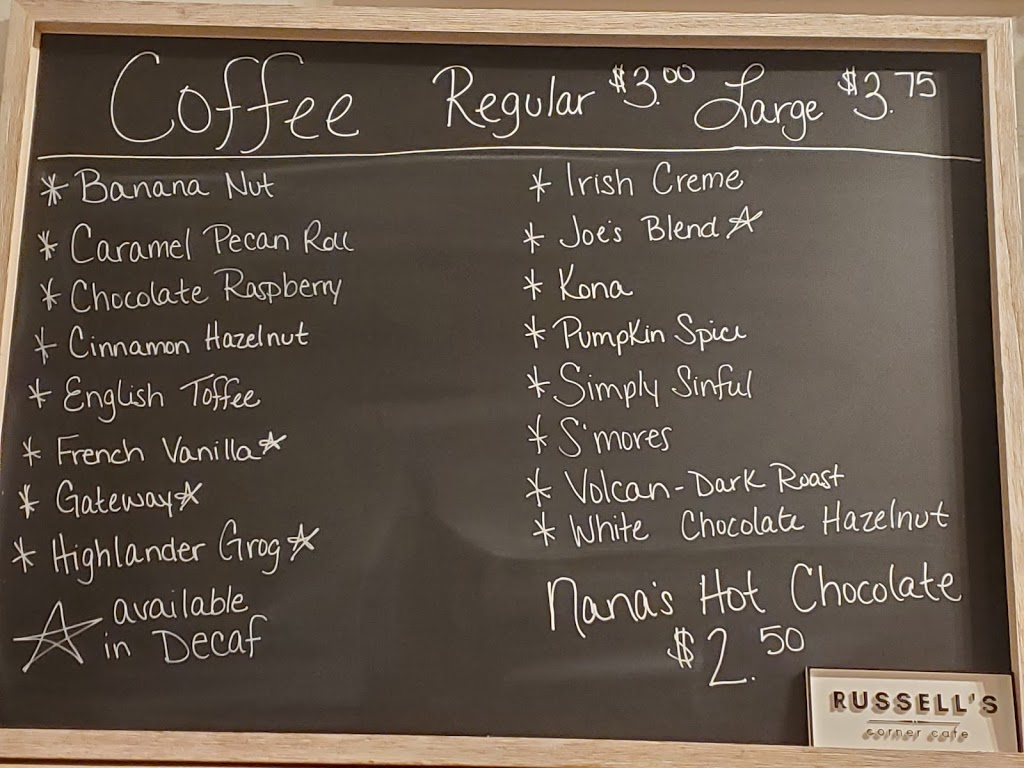 Coffee Regular $3.00 Large $3.75
* Banana Nut
* Caramel Pecan Roll
* Chocolate Raspberry
* Cinnamon Hazelnut
* English Toffee
* French Vanilla ☆
* Gateway ☆
* Highlander Grog ☆
☆ available
in Decaf
* Irish Creme
* Joe's Blend ☆
* Kona
* Pumpkin Spice
* Simply Sinful
* S'mores
* Volcan-Dark Roast
* White Chocolate Hazelnut
Nana's Hot Chocolate
$2.50
RUSSELL'S
corner cafe